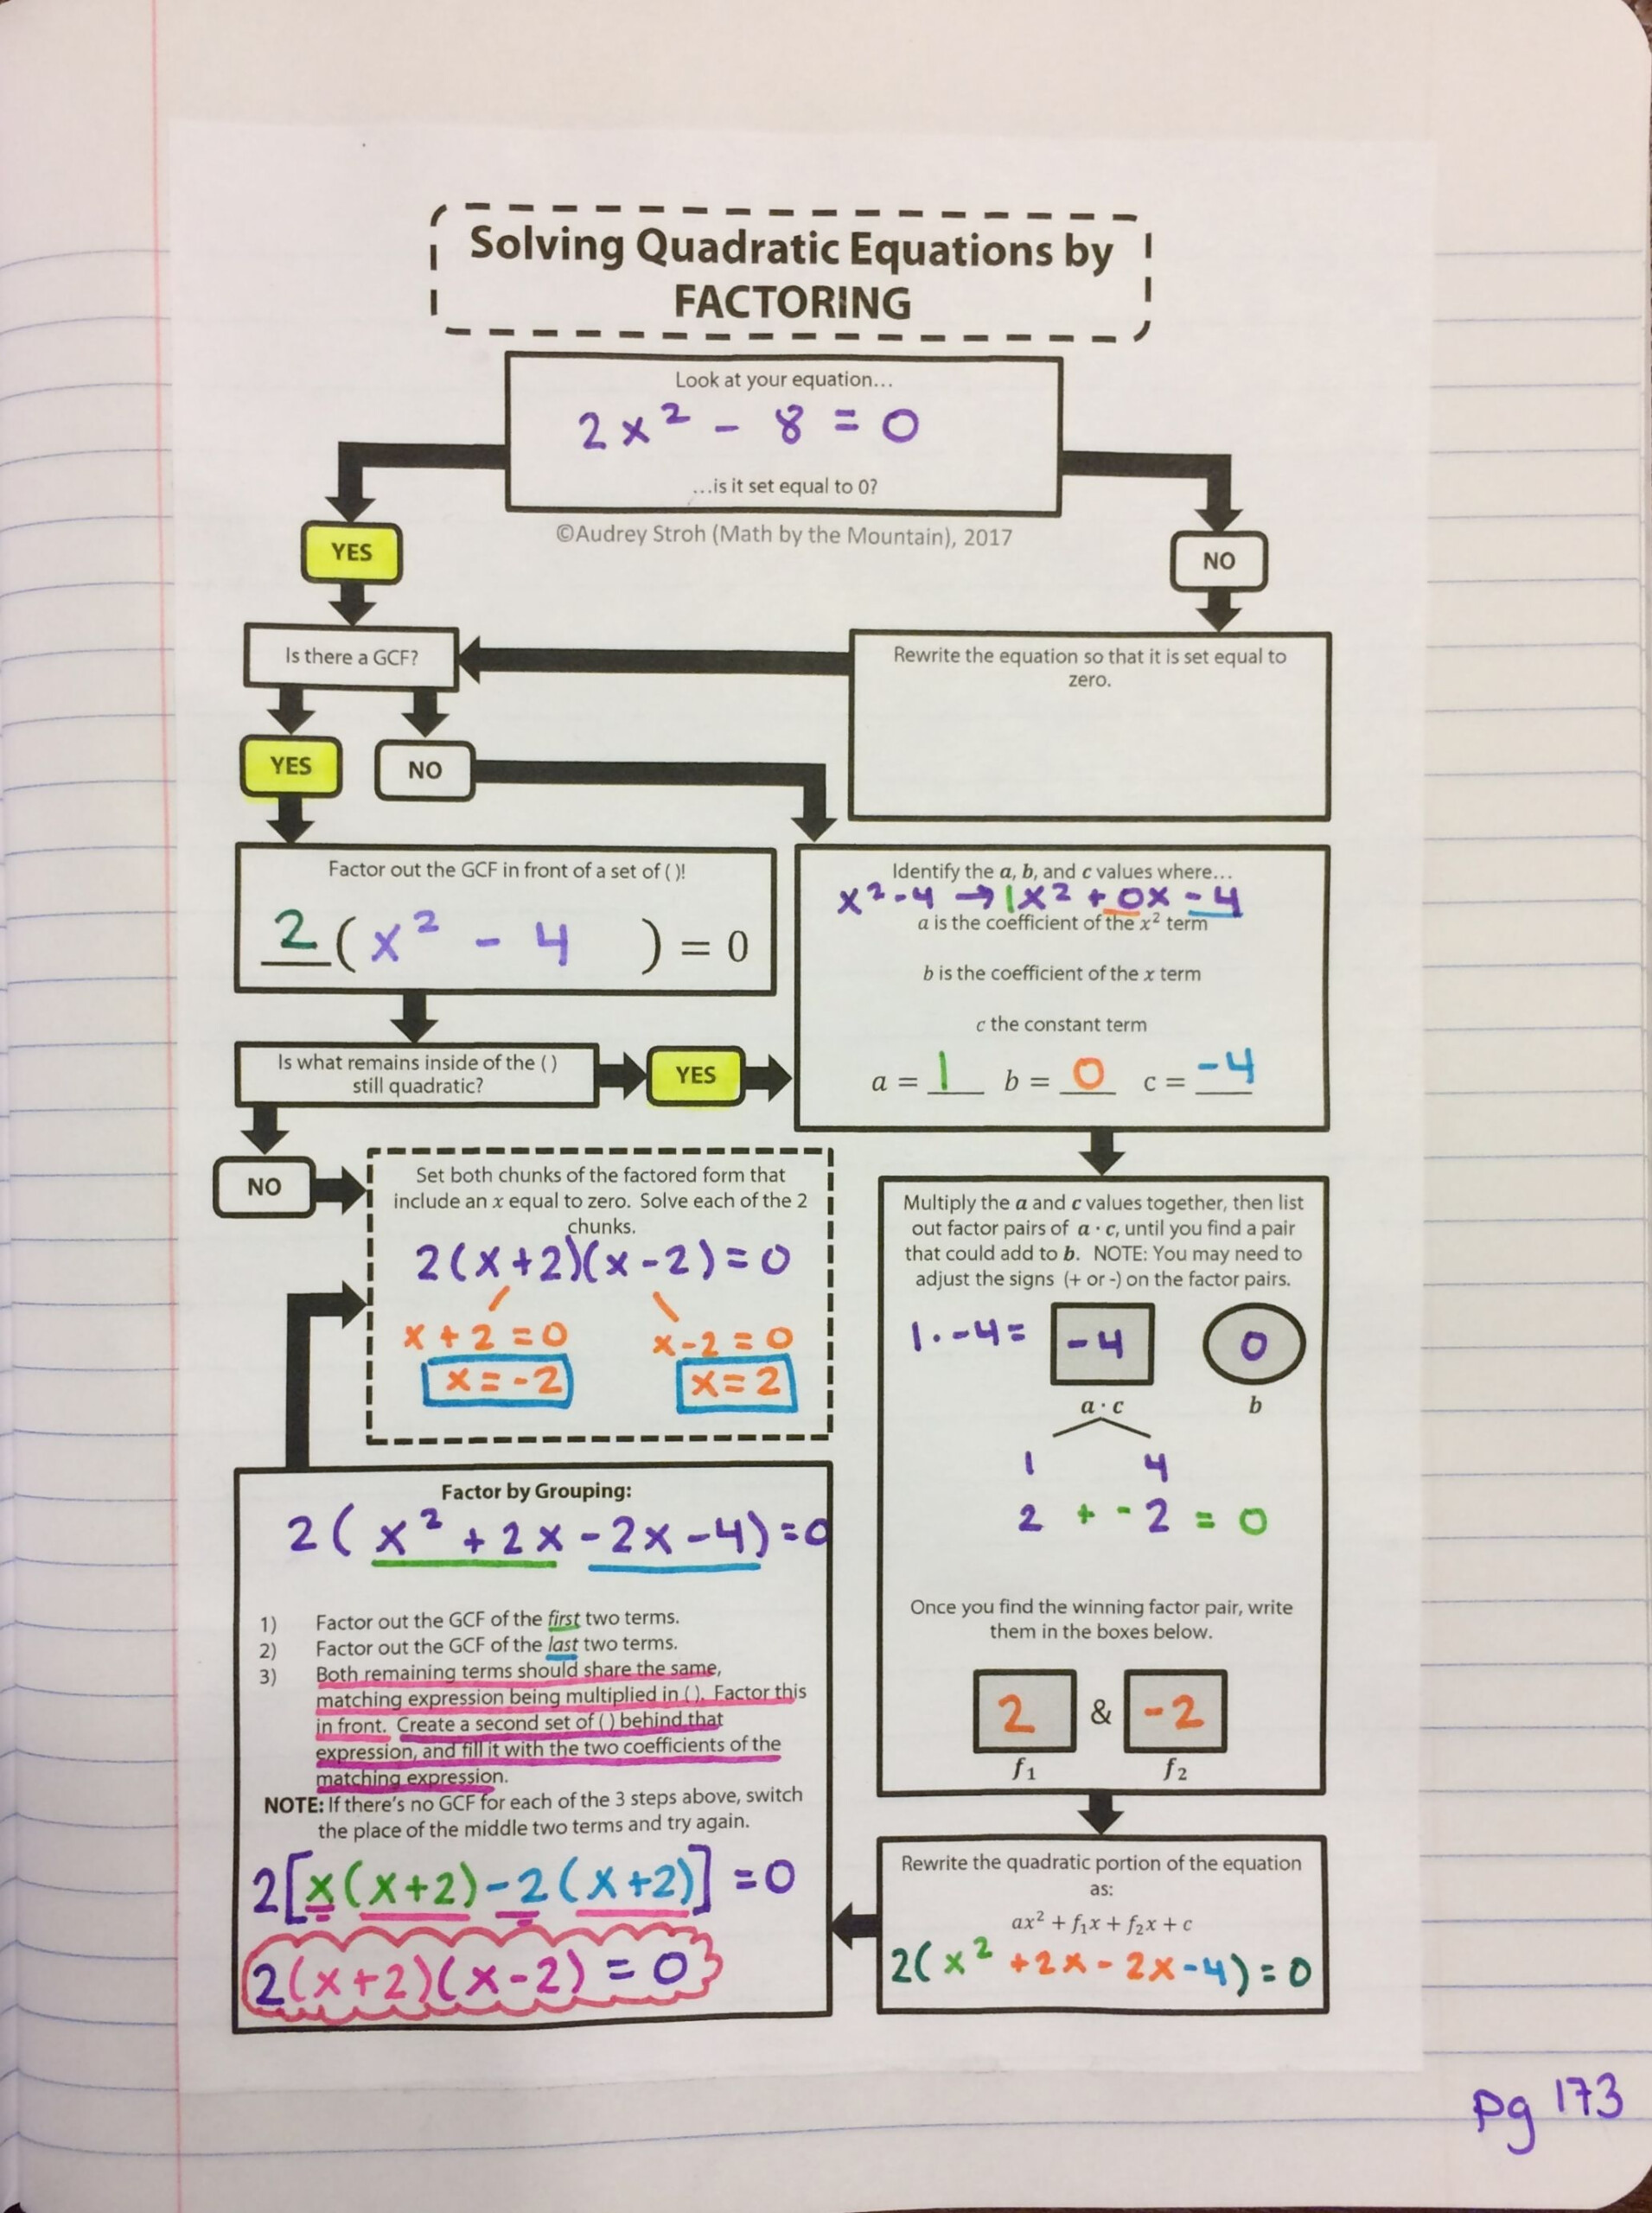 Solving Quadratic Equations by
FACTORING
Look at your equation...
2x² - 8 = 0
...is it set equal to 0?
©Audrey Stroh (Math by the Mountain), 2017
YES
NO
Is there a GCF?
Rewrite the equation so that it is set equal to
zero.
YES
NO
Factor out the GCF in front of a set of ( )!
2 ( x² - 4 ) = 0
Identify the a, b, and c values where...
x²-4 → 1x² + 0x - 4
a is the coefficient of the x² term
b is the coefficient of the x term
c the constant term
a = 1 b = 0 c = -4
Is what remains inside of the ( )
still quadratic?
YES
NO
Set both chunks of the factored form that
include an x equal to zero. Solve each of the 2
chunks.
2(x+2)(x-2)=0
x + 2 = 0 x-2 = 0
x = -2 x = 2
Multiply the a and c values together, then list
out factor pairs of a · c, until you find a pair
that could add to b. NOTE: You may need to
adjust the signs (+ or -) on the factor pairs.
1 · -4 = -4 0
a · c b
1 4
2 + -2 = 0
Once you find the winning factor pair, write
them in the boxes below.
2 & -2
f₁ f₂
Rewrite the quadratic portion of the equation
as:
ax² + f₁x + f₂x + c
2( x² +2x - 2x -4) = 0
Factor by Grouping:
2( x² + 2x - 2x - 4) = 0
1) Factor out the GCF of the first two terms.
2) Factor out the GCF of the last two terms.
3) Both remaining terms should share the same,
matching expression being multiplied in ( ). Factor this
in front. Create a second set of ( ) behind that
expression, and fill it with the two coefficients of the
matching expression.
NOTE: If there's no GCF for each of the 3 steps above, switch
the place of the middle two terms and try again.
2[x(x+2)-2(x+2)] = 0
2(x+2)(x-2) = 0
pg 173